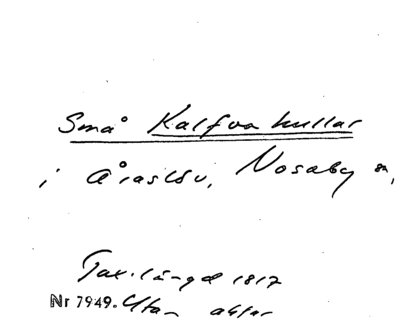 Små Kalfva kullar
i Åraslöv, Nosaby sn,
Tax.längd 1817
Nr 7949. Utan aktar